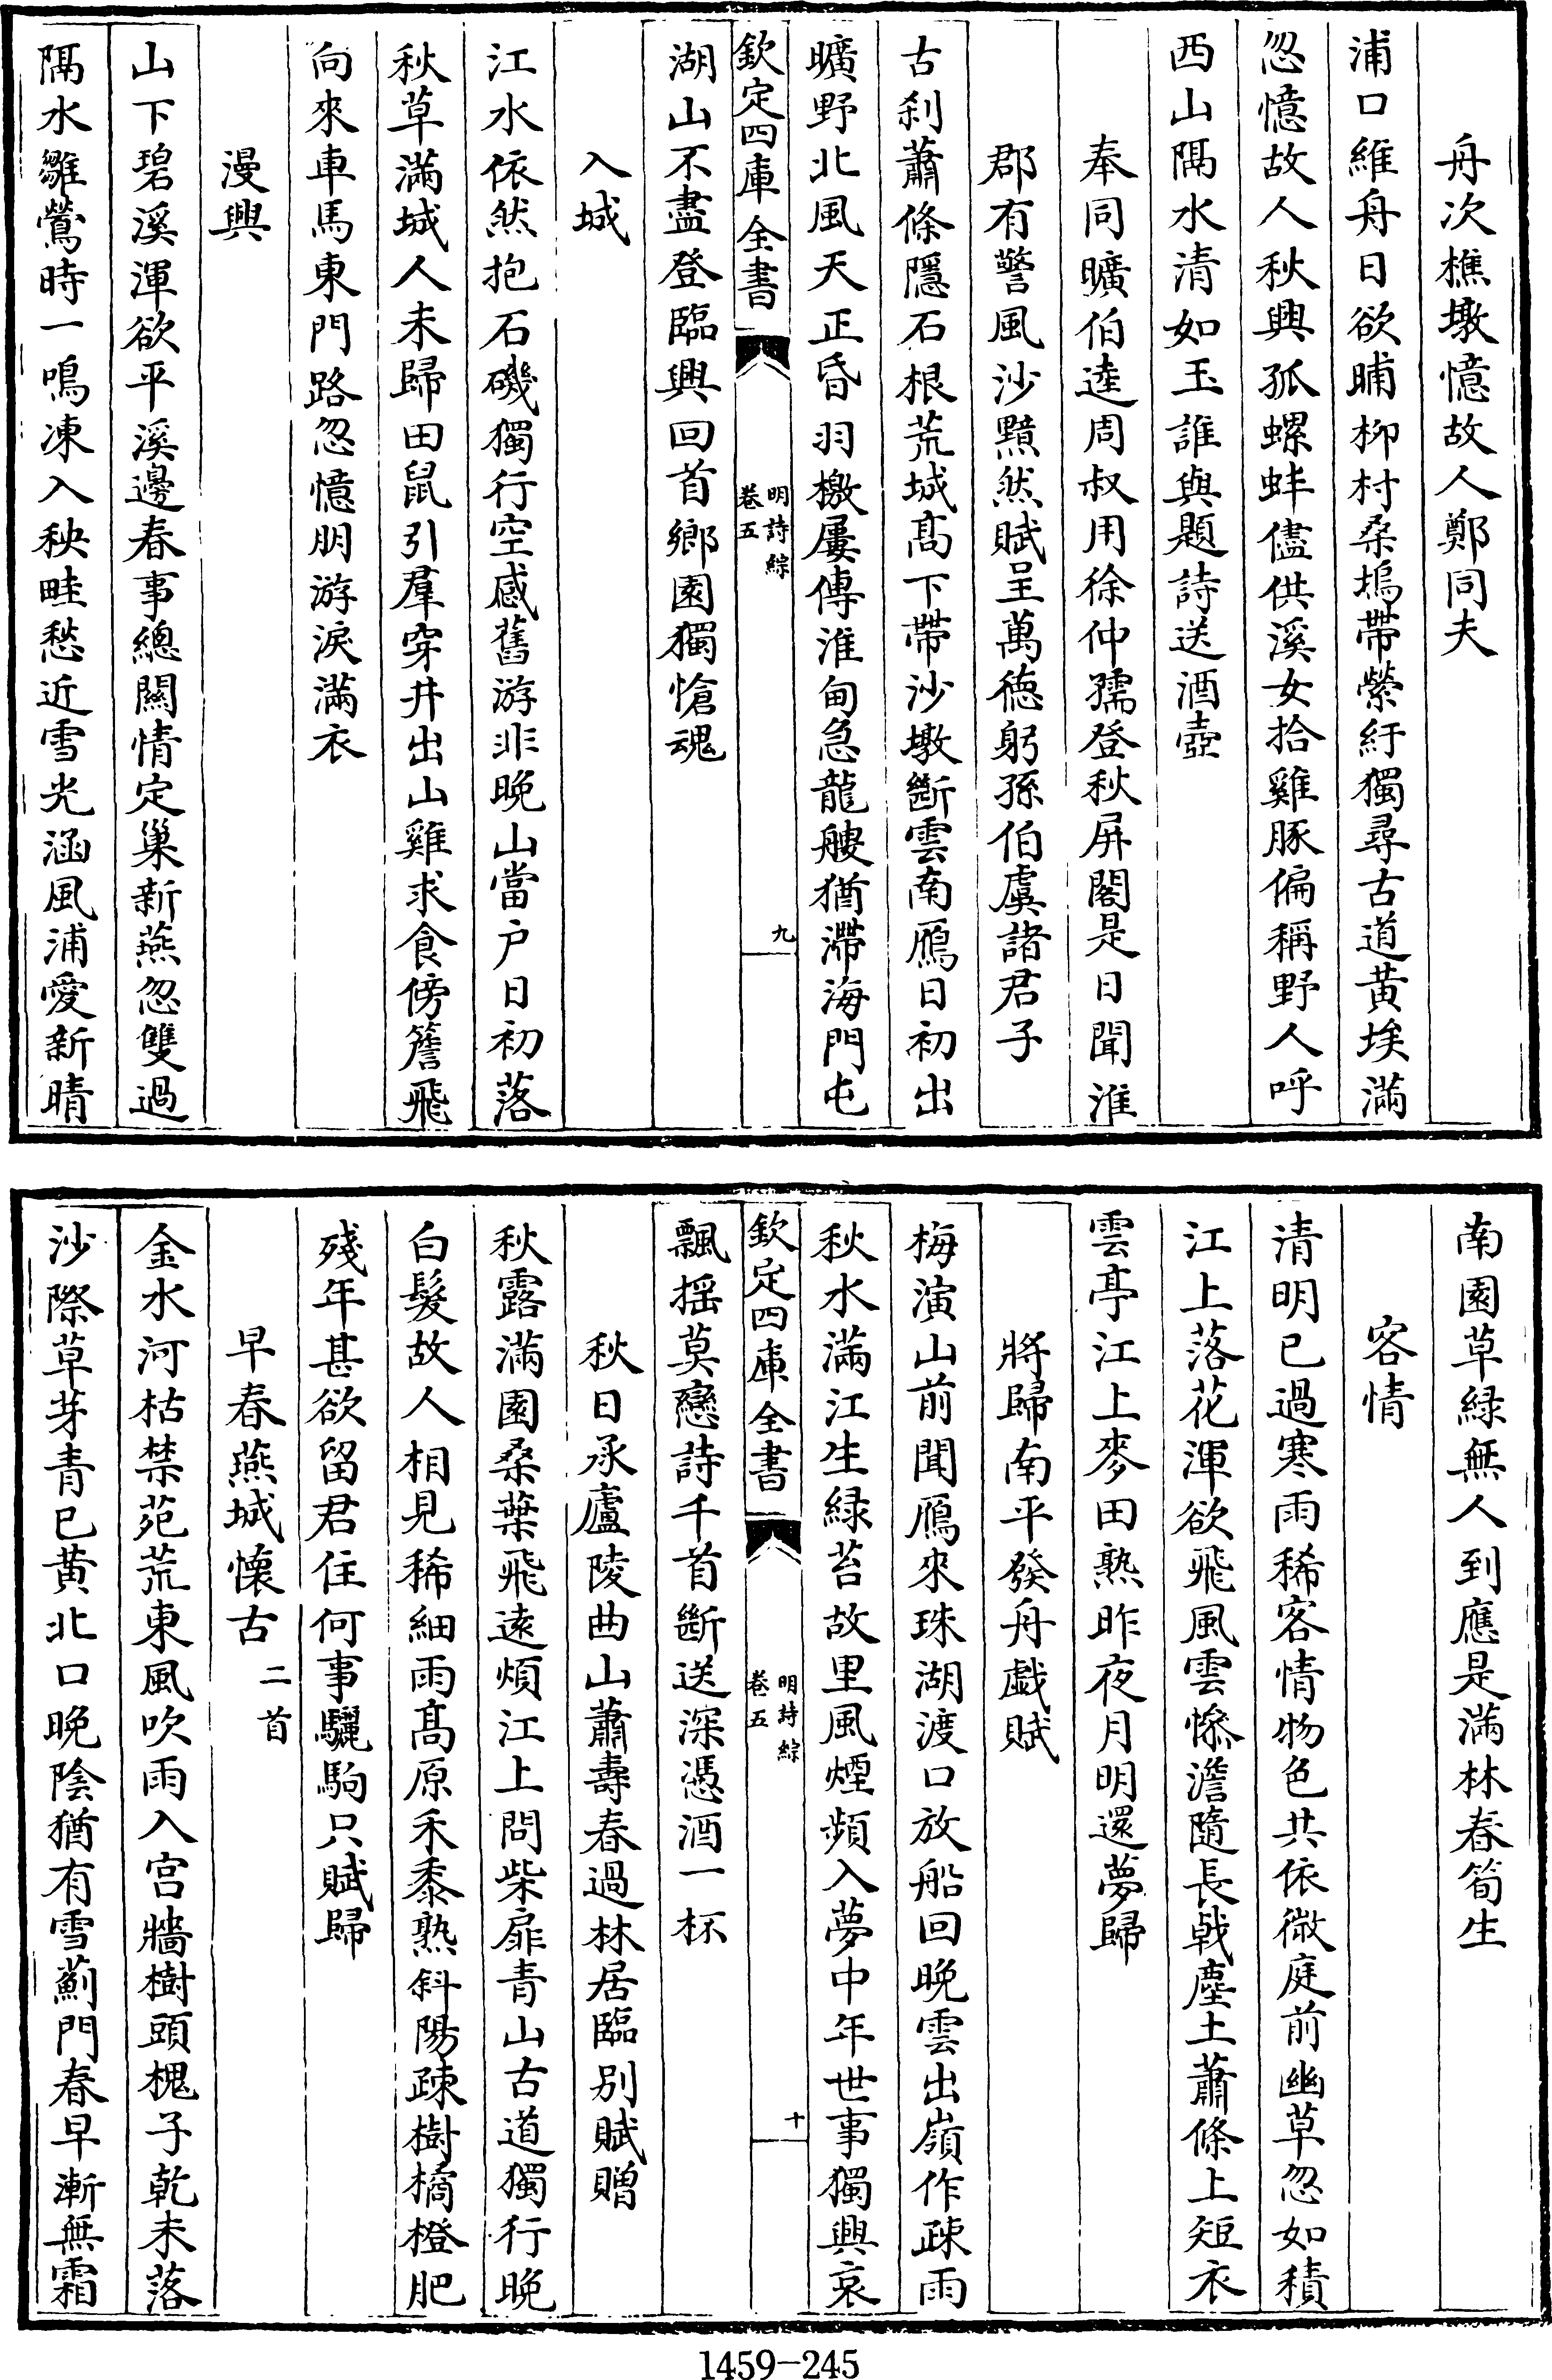 舟次樵墩憶故人鄭同夫
浦口維舟日欲晡柳村桑塢帶縈紆獨尋古道黄埃滿
忽憶故人秋興孤螺蚌儘供溪女拾雞豚偏稱野人呼
西山隔水清如玉誰與題詩送酒壺
奉同曠伯逵周叔用徐仲孺登秋屏閣是日聞淮
郡有警風沙黯然賦呈萬徳躬孫伯虞諸君子
古刹蕭條隱石根荒城髙下帶沙墩斷雲南鴈日初出
曠野北風天正昏羽檄屢傳淮甸急龍艘猶滯海門屯
欽定四庫全書
明詩綜
卷五
九
湖山不盡登臨興回首鄉園獨愴魂
入城
江水依然抱石磯獨行空感舊游非晚山當户日初落
秋草滿城人未歸田鼠引羣穿井出山雞求食傍簷飛
向來車馬東門路忽憶朋游淚滿衣
漫興
山下碧溪渾欲平溪邊春事總關情定巢新燕忽雙過
隔水雛鶯時一鳴凍入秧畦愁近雪光涵風浦愛新晴
南園草緑無人到應是滿林春筍生
客情
清明已過寒雨稀客情物色共依微庭前幽草忽如積
江上落花渾欲飛風雲慘澹隨長戟塵土蕭條上短衣
雲亭江上麥田熟昨夜月明還夢歸
將歸南平發舟戯賦
梅演山前聞鴈來珠湖渡口放船回晚雲出嶺作疎雨
秋水滿江生緑苔故里風煙頻入夢中年世事獨興哀
欽定四庫全書
明詩綜
卷五
十
飄摇莫戀詩千首斷送深憑酒一杯
秋日承廬陵曲山蕭壽春過林居臨别賦贈
秋露滿園桑葉飛遠煩江上問柴扉青山古道獨行晚
白髮故人相見稀細雨髙原禾黍熟斜陽疎樹橘橙肥
殘年甚欲留君住何事驪駒只賦歸
早春燕城懷古二首
金水河枯禁苑荒東風吹雨入宫牆樹頭槐子乾未落
沙際草芽青已黄北口晚陰猶有雪薊門春早漸無霜
1459-245